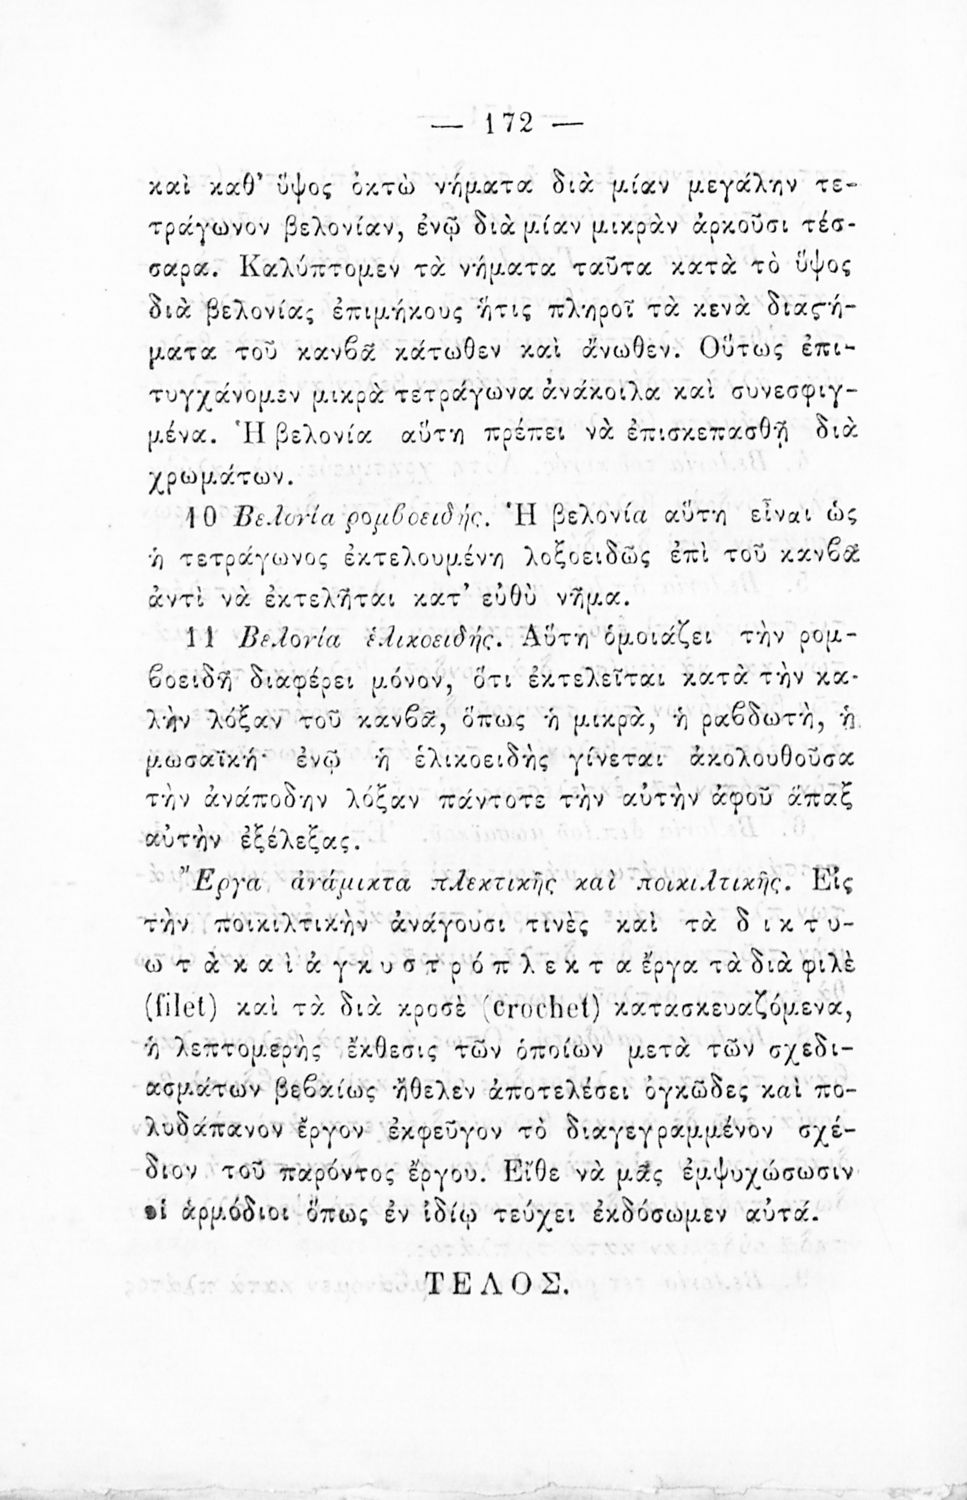 — 172 —
καὶ καθ' ὕψος ὀκτὼ νήματα διὰ μίαν μεγάλην τε-
τράγωνον βελονίαν, ἐνῷ διὰ μίαν μικρὰν ἀρκοῦσι τέσ-
σαρα. Καλύπτομεν τὰ νήματα ταῦτα κατὰ τὸ ὕψος
διὰ βελονίας ἐπιμήκους ἥτις πληροῖ τὰ κενὰ διαϛή-
ματα τοῦ κανϐᾶ κάτωθεν καὶ ἄνωθεν. Οὕτως ἐπι-
τυγχάνομεν μικρὰ τετράγωνα ἀνάκοιλα καὶ συνεσφιγ-
μένα. Ἡ βελονία αὕτη πρέπει νὰ ἐπισκεπασθῇ διὰ
χρωμάτων.
10 Βελονία ρομϐοειδής. Ἡ βελονία αὕτη εἶναι ὡς
ἡ τετράγωνος ἐκτελουμένη λοξοειδῶς ἐπὶ τοῦ κανϐᾶ
ἀντὶ νὰ ἐκτελῆται κατ' εὐθὺ νῆμα.
11 Βελονία ἑλικοειδής. Αὕτη ὁμοιάζει τὴν ρομ-
ϐοειδῆ διαφέρει μόνον, ὅτι ἐκτελεῖται κατὰ τὴν κα-
λὴν λόξαν τοῦ κανϐᾶ, ὅπως ἡ μικρὰ, ἡ ραϐδωτὴ, ἡ
μωσαϊκή· ἐνῷ ἡ ἑλικοειδὴς γίνεται ἀκολουθοῦσα
τὴν ἀνάποδην λόξαν πάντοτε τὴν αὐτὴν ἀφοῦ ἅπαξ
αὐτὴν ἐξέλεξας.
Ἔργα ἀνάμικτα πλεκτικῆς καὶ ποικιλτικῆς. Εἰς
τὴν ποικιλτικὴν ἀνάγουσι τινὲς καὶ τὰ δικτυ-
ωτὰ καὶ ἀγκυστρόπλεκτα ἔργα τὰ διὰ φιλὲ
(filet) καὶ τὰ διὰ κροσὲ (crochet) κατασκευαζόμενα,
ἡ λεπτομερὴς ἔκθεσις τῶν ὁποίων μετὰ τῶν σχεδι-
ασμάτων βεϐαίως ἤθελεν ἀποτελέσει ὀγκῶδες καὶ πο-
λυδάπανον ἔργον ἐκφεῦγον τὸ διαγεγραμμένον σχέ-
διον τοῦ παρόντος ἔργου. Εἴθε νὰ μᾶς ἐμψυχώσωσιν
οἱ ἁρμόδιοι ὅπως ἐν ἰδίῳ τεύχει ἐκδόσωμεν αὐτά.
ΤΕΛΟΣ.